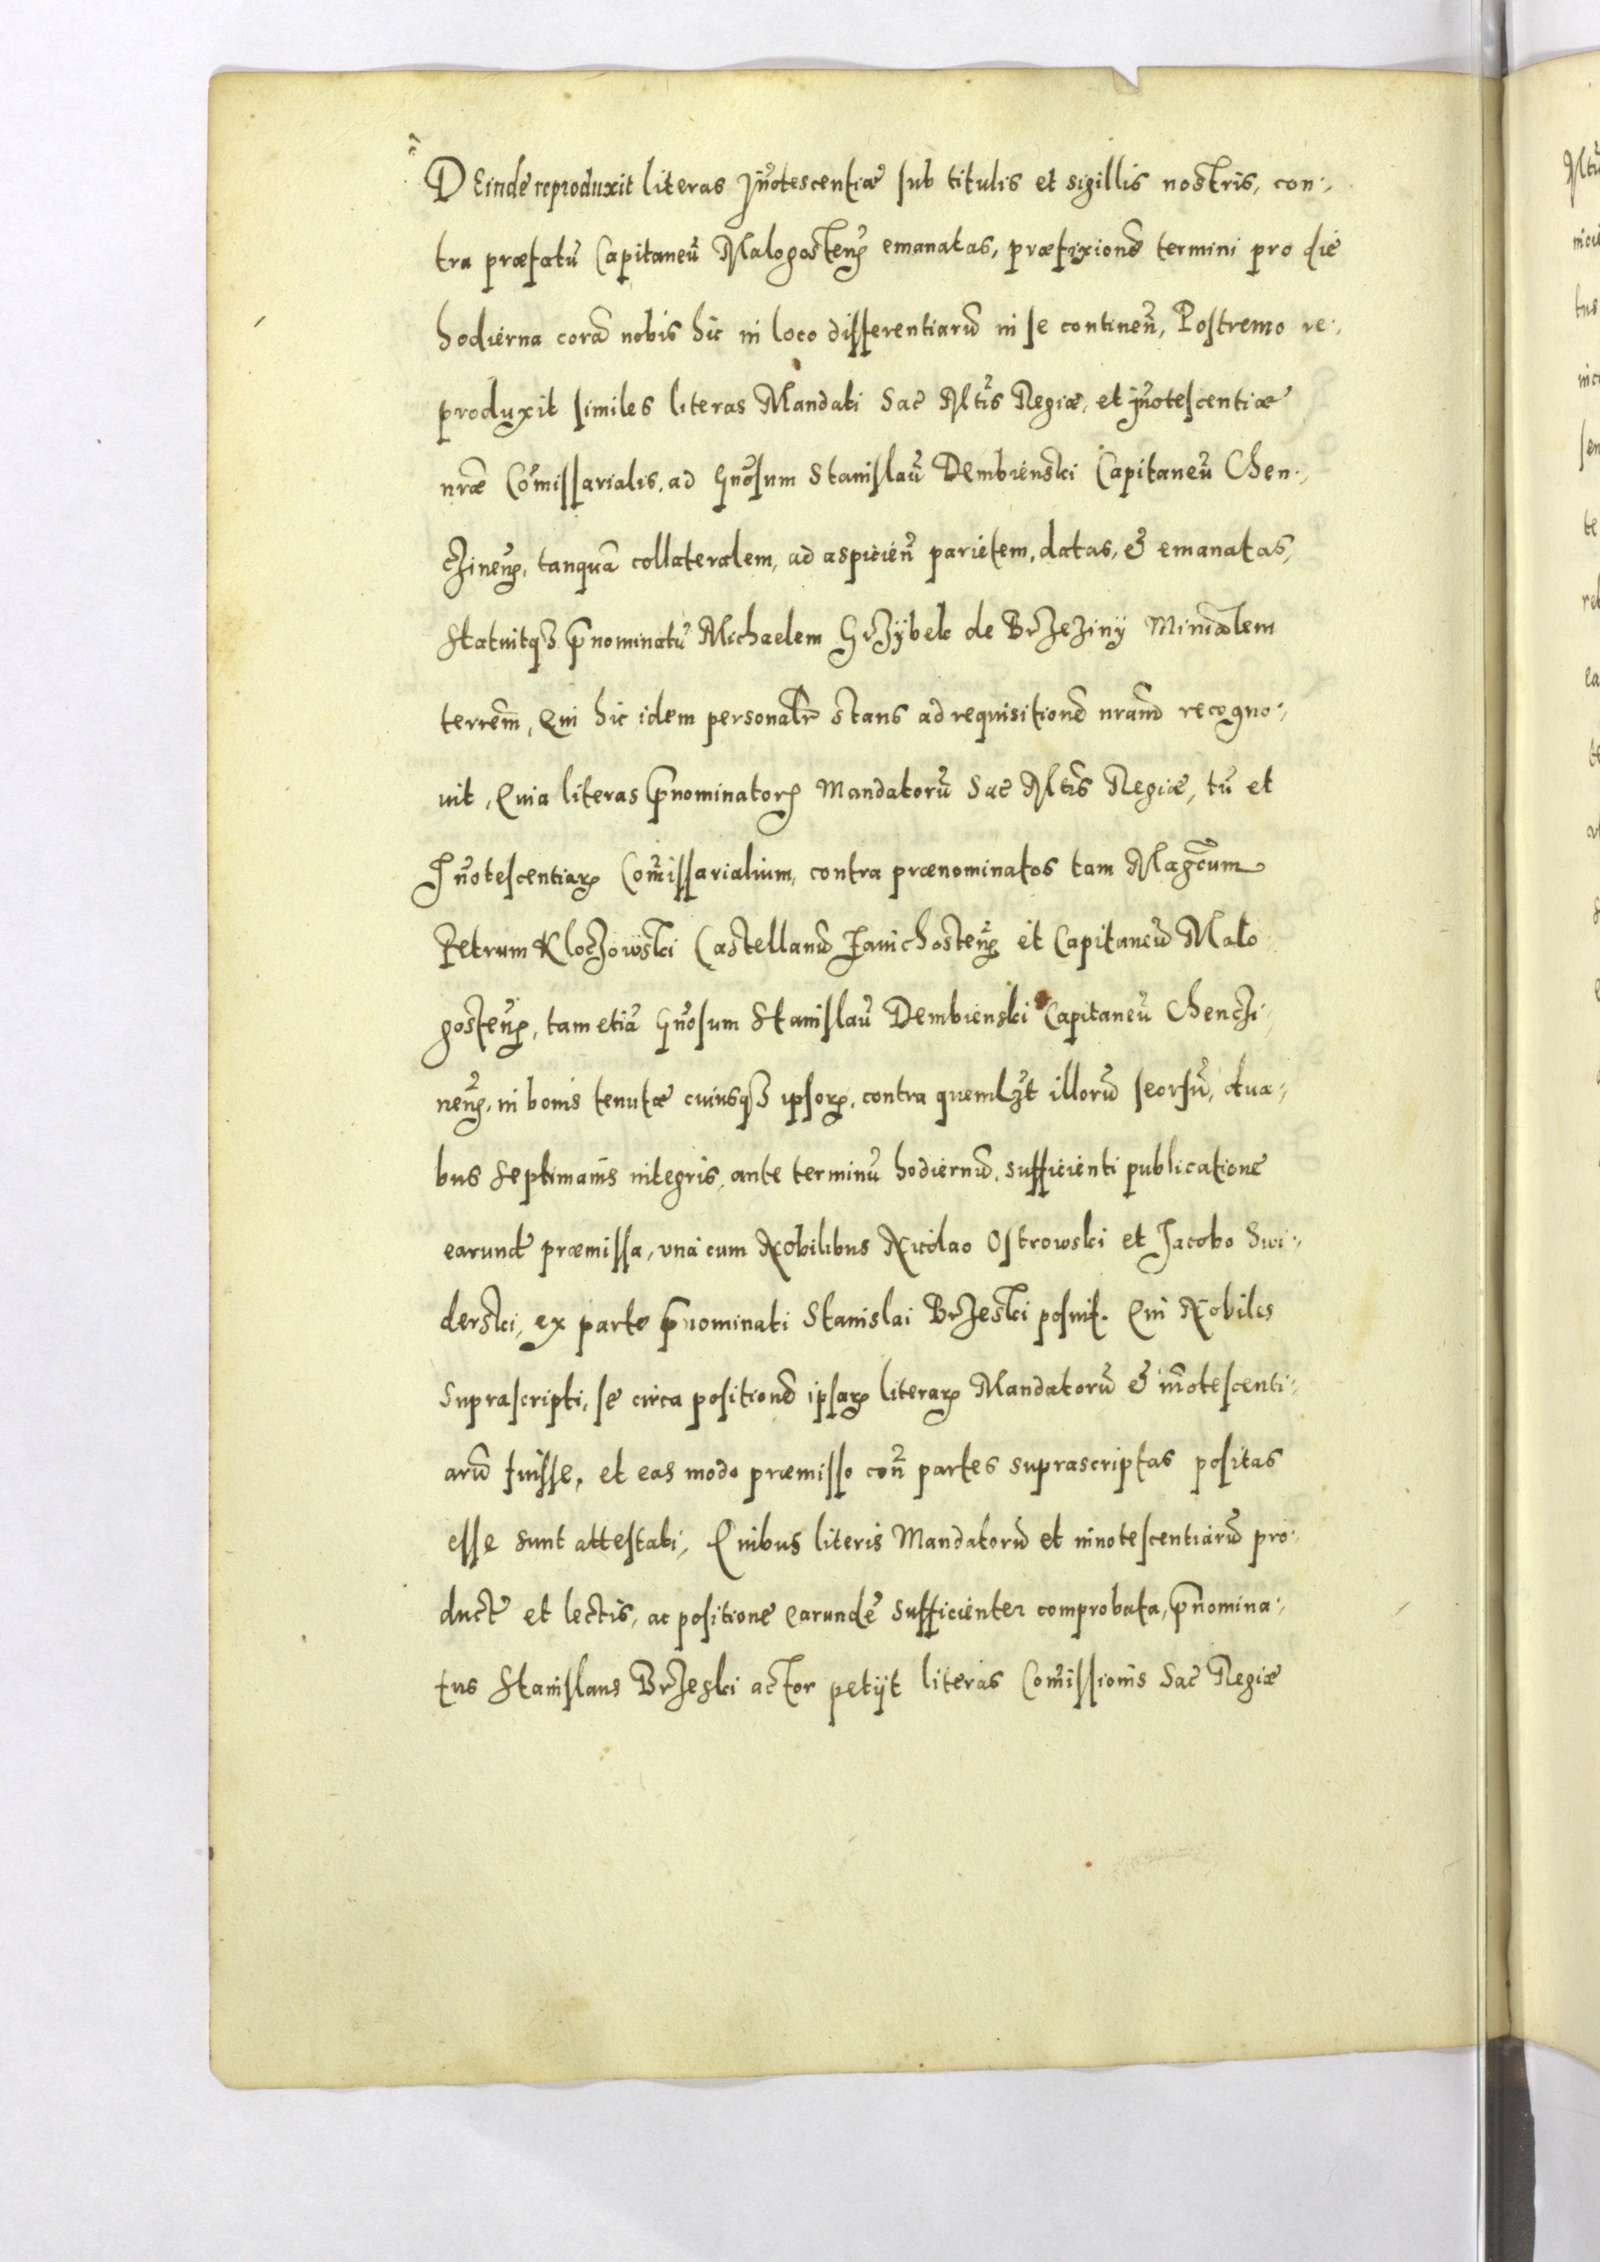 DEinde reproduxit literas Iñotescentiæ sub titulis et sigillis nostris, con:
tra præfatũ Capitaneũ Malogosteñ emanatas, præfixionẽ termini pro die
hodierna corã nobis hic in loco differentiarũ in se contineñ, Postremo re:
produxit similes literas Mandati Sac̃ Mtis̃ Regiæ, et iñotescentiæ
nr̃æ Com̃issarialis, ad Gñosum Stanislaũ Dembienski Capitaneũ Chen:
czineñ, tanquã collateralem, ad aspicieñ parietem, datas, & emanatas,
Statuitq3 p̃nominatũ Michaelem Grzÿbek de Brzezinÿ Miniałem
terrem̃, Qui hic idem personalr̃ stans ad requisitionẽ nr̃am recogno:
uit, Quia literas p̃nominator Mandatorũ Sac̃ Mtis̃ Regiæ, tũ et
Iñotescentiar Com̃issarialium, contra prænominatos tam Magc̃um
Petrum Kloczowski Castellanũ Zawichosteñ et Capitaneũ Malo
gosteñ, tam etiã Gñosum Stanislaũ Dembienski Capitaneũ Chenczi:
neñ, in bonis tenutæ cuiusq3 ipsor, contra quemlzt illorũ seorsũ, dua:
bus septimanis integris, ante terminũ hodiernũ, sufficienti publicatione
earundẽ præmissa, vna cum Nobilibus Nicolao Ostrowski et Jacobo Swi:
derski, ex parte p̃nominati Stanislai Brzeski posuit. Qui Nobiles
Suprascripti, se circa positionẽ ipsar literar Mandatorũ & iñotescenti:
arũ fuisse, et eas modo præmisso coñ partes suprascriptas positas
esse sunt attestati, Quibus literis Mandatorũ et innotescentiarũ pro:
duct̃ et lectis, ac positione earundẽ sufficienter comprobata, p̃nomina:
tus Stanislaus Brzeski actor petijt literas Com̃issionis Sac̃ Regiæ